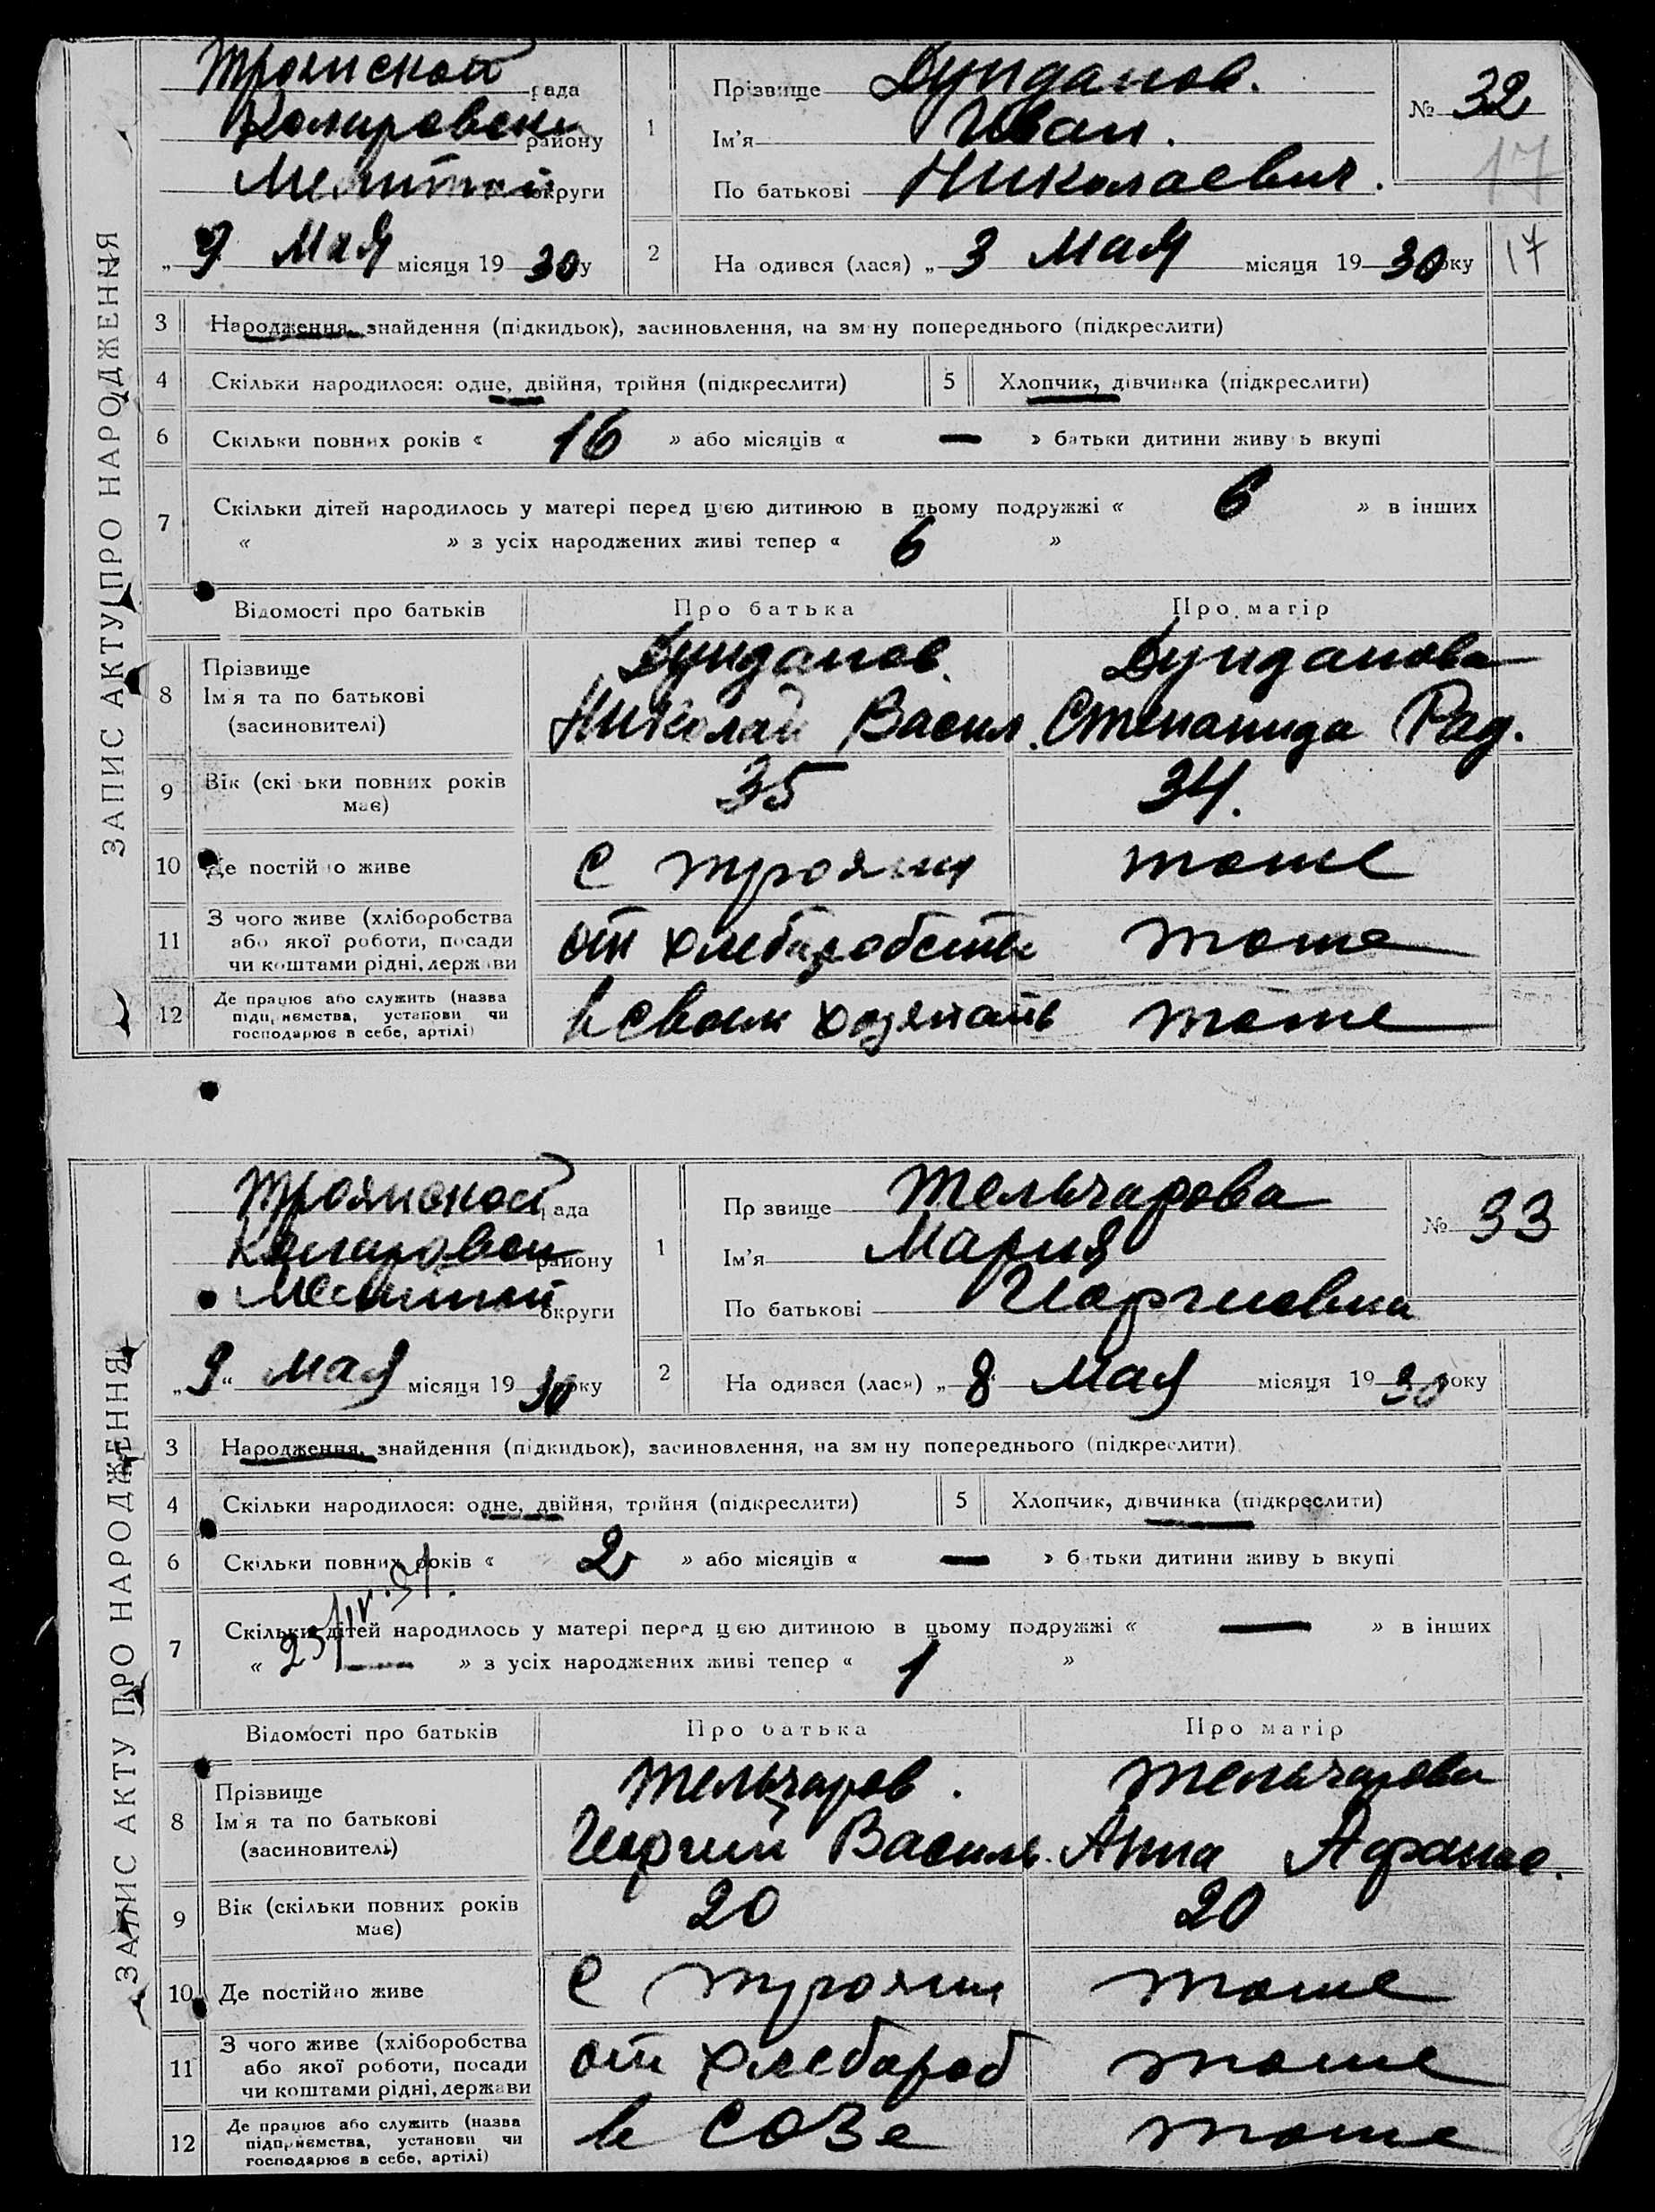 ЗАПИС АКТУ ПРО НАРОДЖЕННЯ
Троянской рада
Коларовск району
округи
„ 9 мая місяця 19 30 у
1
Прізвище Дунданов.
Ім'я Иван.
По батькові Николаевич.
№ 32
17
2 На одився (лася) „ 3 мая місяця 19 30 оку
17
3 Народження, знайдення (підкидьок), засиновлення, на зм ну попереднього (підкреслити)
4 Скільки народилося: одне, двійня, трійня (підкреслити) 5 Хлопчик, дівчинка (підкреслити)
6 Скільки повних років « 16 » або місяців « — » батьки дитини живу ь вкупі
7 Скільки дітей народилось у матері перед цією дитиною в цьому подружжі « 6 » в інших
« » з усіх народжених живі тепер « 6 »
Відомості про батьків Про батька Про матір
8 Прізвище Дунданов. Дунданова
Ім'я та по батькові Николай Васил. Степанида Рад.
(засиновителі)
9 Вік (скі ьки повних років має) 35 34.
10 Де постій о живе с Трояни тоже
11 З чого живе (хліборобства
або якої роботи, посади от хлебаробства тоже
чи коштами рідні, держави
12 Де працює або служить (назва
підпиємства, установи чи в своем хозяйств тоже
господарює в себе, артілі)
ЗАПИС АКТУ ПРО НАРОДЖЕННЯ
Троянской рада
Коларовск району
округи
„ 9 “ мая місяця 19 30 ку
1
Пр звище Тельчарова
Ім'я Мария
По батькові Георгиевна
№ 33
2 На одився (лася) „ 8 мая місяця 19 30 оку
3 Народження, знайдення (підкидьок), засиновлення, на зм ну попереднього (підкреслити)
4 Скільки народилося: одне, двійня, трійня (підкреслити) 5 Хлопчик, дівчинка (підкреслити)
6 Скільки повних років « 2 » або місяців « — » б тьки дитини живу ь вкупі
25/IV.31.
7 Скільки дітей народилось у матері перед ц єю дитиною в цьому подружжі « — » в інших
« — » з усіх народжених живі тепер « 1 »
Відомості про батьків Про батька Про матір
8 Прізвище Тельчаров. Тельчарова
Ім'я та по батькові Георгий Василь. Анна Афанас.
(засиновителі)
9 Вік (скільки повних років має) 20 20
10 Де постійно живе с Трояни тоже
11 З чого живе (хліборобства
або якої роботи, посади от хлебароб тоже
чи коштами рідні, держави
12 Де працює або служить (назва
підприємства, установи чи в СОЗе тоже
господарює в себе, артілі)